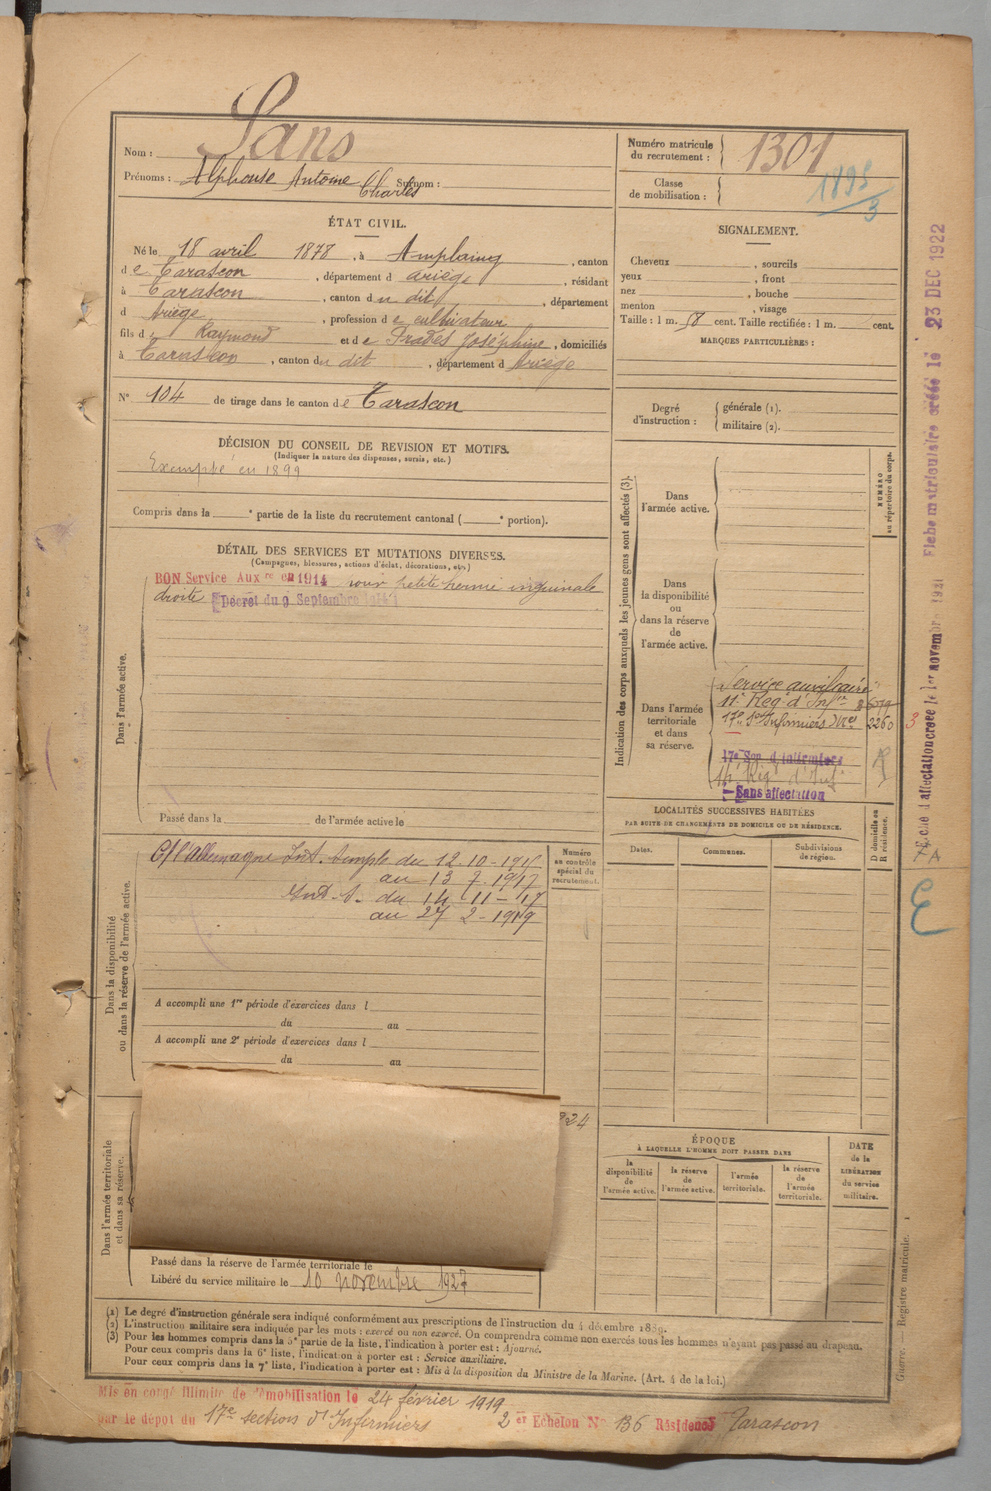 Nom : Sans
Prénoms : Alphonse Antoine Charles Surnom :
Numéro matricule du recrutement : 1301
Classe de mobilisation : 1898/3
ÉTAT CIVIL.
Né le 18 avril 1878, à Amplaing, canton
de Tarascon, département d ariège, résidant
à Tarascon, canton du dit, département
d Ariège, profession de cultivateur
fils de Raymond et de Pradès Joséphine, domiciliés
à Tarascon, canton du dit, département d Ariège
N° 104 de tirage dans le canton de Tarascon
DÉCISION DU CONSEIL DE REVISION ET MOTIFS.
(Indiquer la nature des dispenses, sursis, etc.)
Exempté en 1899
Compris dans la e partie de la liste du recrutement cantonal ( e portion).
DÉTAIL DES SERVICES ET MUTATIONS DIVERSES.
(Campagnes, blessures, actions d'éclat, décorations, etc.)
BON Service Aux re en 1914 pour petite hernie inguinale
droite Décret du 9 Septembre 1914
Dans l'armée active.
Passé dans la de l'armée active le
Dans la disponibilité
ou dans la réserve de l'armée active.
C/ l'Allemagne Int. simple du 12-10-1915
au 13 7-1917
Int. S. du 14 11-17
au 27 2-1919
Numéro
au contrôle
spécial du
recrutement.
A accompli une 1re période d'exercices dans l
du au
A accompli une 2e période d'exercices dans l
du au
24
Dans l'armée territoriale
et dans sa réserve.
Passé dans la réserve de l'armée territoriale le
Libéré du service militaire le 10 novembre 1927
SIGNALEMENT.
Cheveux , sourcils
yeux , front
nez , bouche
menton , visage
Taille : 1 m. 58 cent. Taille rectifiée : 1 m. cent.
MARQUES PARTICULIÈRES :
Degré d'instruction : générale (1).
militaire (2).
Indication des corps auxquels les jeunes gens sont affectés (3).
NUMÉRO
au répertoire du corps.
Dans
l'armée active.
Dans
la disponibilité
ou
dans la réserve
de
l'armée active.
Dans l'armée
territoriale
et dans
sa réserve.
Service auxiliaire
11e Reg. d'Infie
17e Son Infirmiers Mres 2260 3
17e Son d'Infirmiers
14 Reg. d'Inf.
Sans affectation
LOCALITÉS SUCCESSIVES HABITÉES
PAR SUITE DE CHANGEMENTS DE DOMICILE OU DE RÉSIDENCE.
Dates. Communes. Subdivisions de région. D domicile ou R résidence.
ÉPOQUE
À LAQUELLE L'HOMME DOIT PASSER DANS
la disponibilité de l'armée active. la réserve de l'armée active. l'armée territoriale. la réserve de l'armée territoriale.
DATE de la LIBÉRATION du service militaire.
Fiche matriculaire créée le 23 DEC 1922
Fiche d'affectation créée le 1er novembre 1921
E
Guerre. — Registre matricule. 1
(1) Le degré d'instruction générale sera indiqué conformément aux prescriptions de l'instruction du 4 décembre 1889.
(2) L'instruction militaire sera indiquée par les mots : exercé ou non exercé. On comprendra comme non exercés tous les hommes n'ayant pas passé au drapeau.
(3) Pour les hommes compris dans la 5e partie de la liste, l'indication à porter est : Ajourné.
Pour ceux compris dans la 6e liste, l'indication à porter est : Service auxiliaire.
Pour ceux compris dans la 7e liste, l'indication à porter est : Mis à la disposition du Ministre de la Marine. (Art. 4 de la loi.)
Mis en congé illimité de démobilisation le 24 février 1919
par le dépôt du 17e section d'Infirmiers 2 er Echelon N° 136 Résidence Tarascon